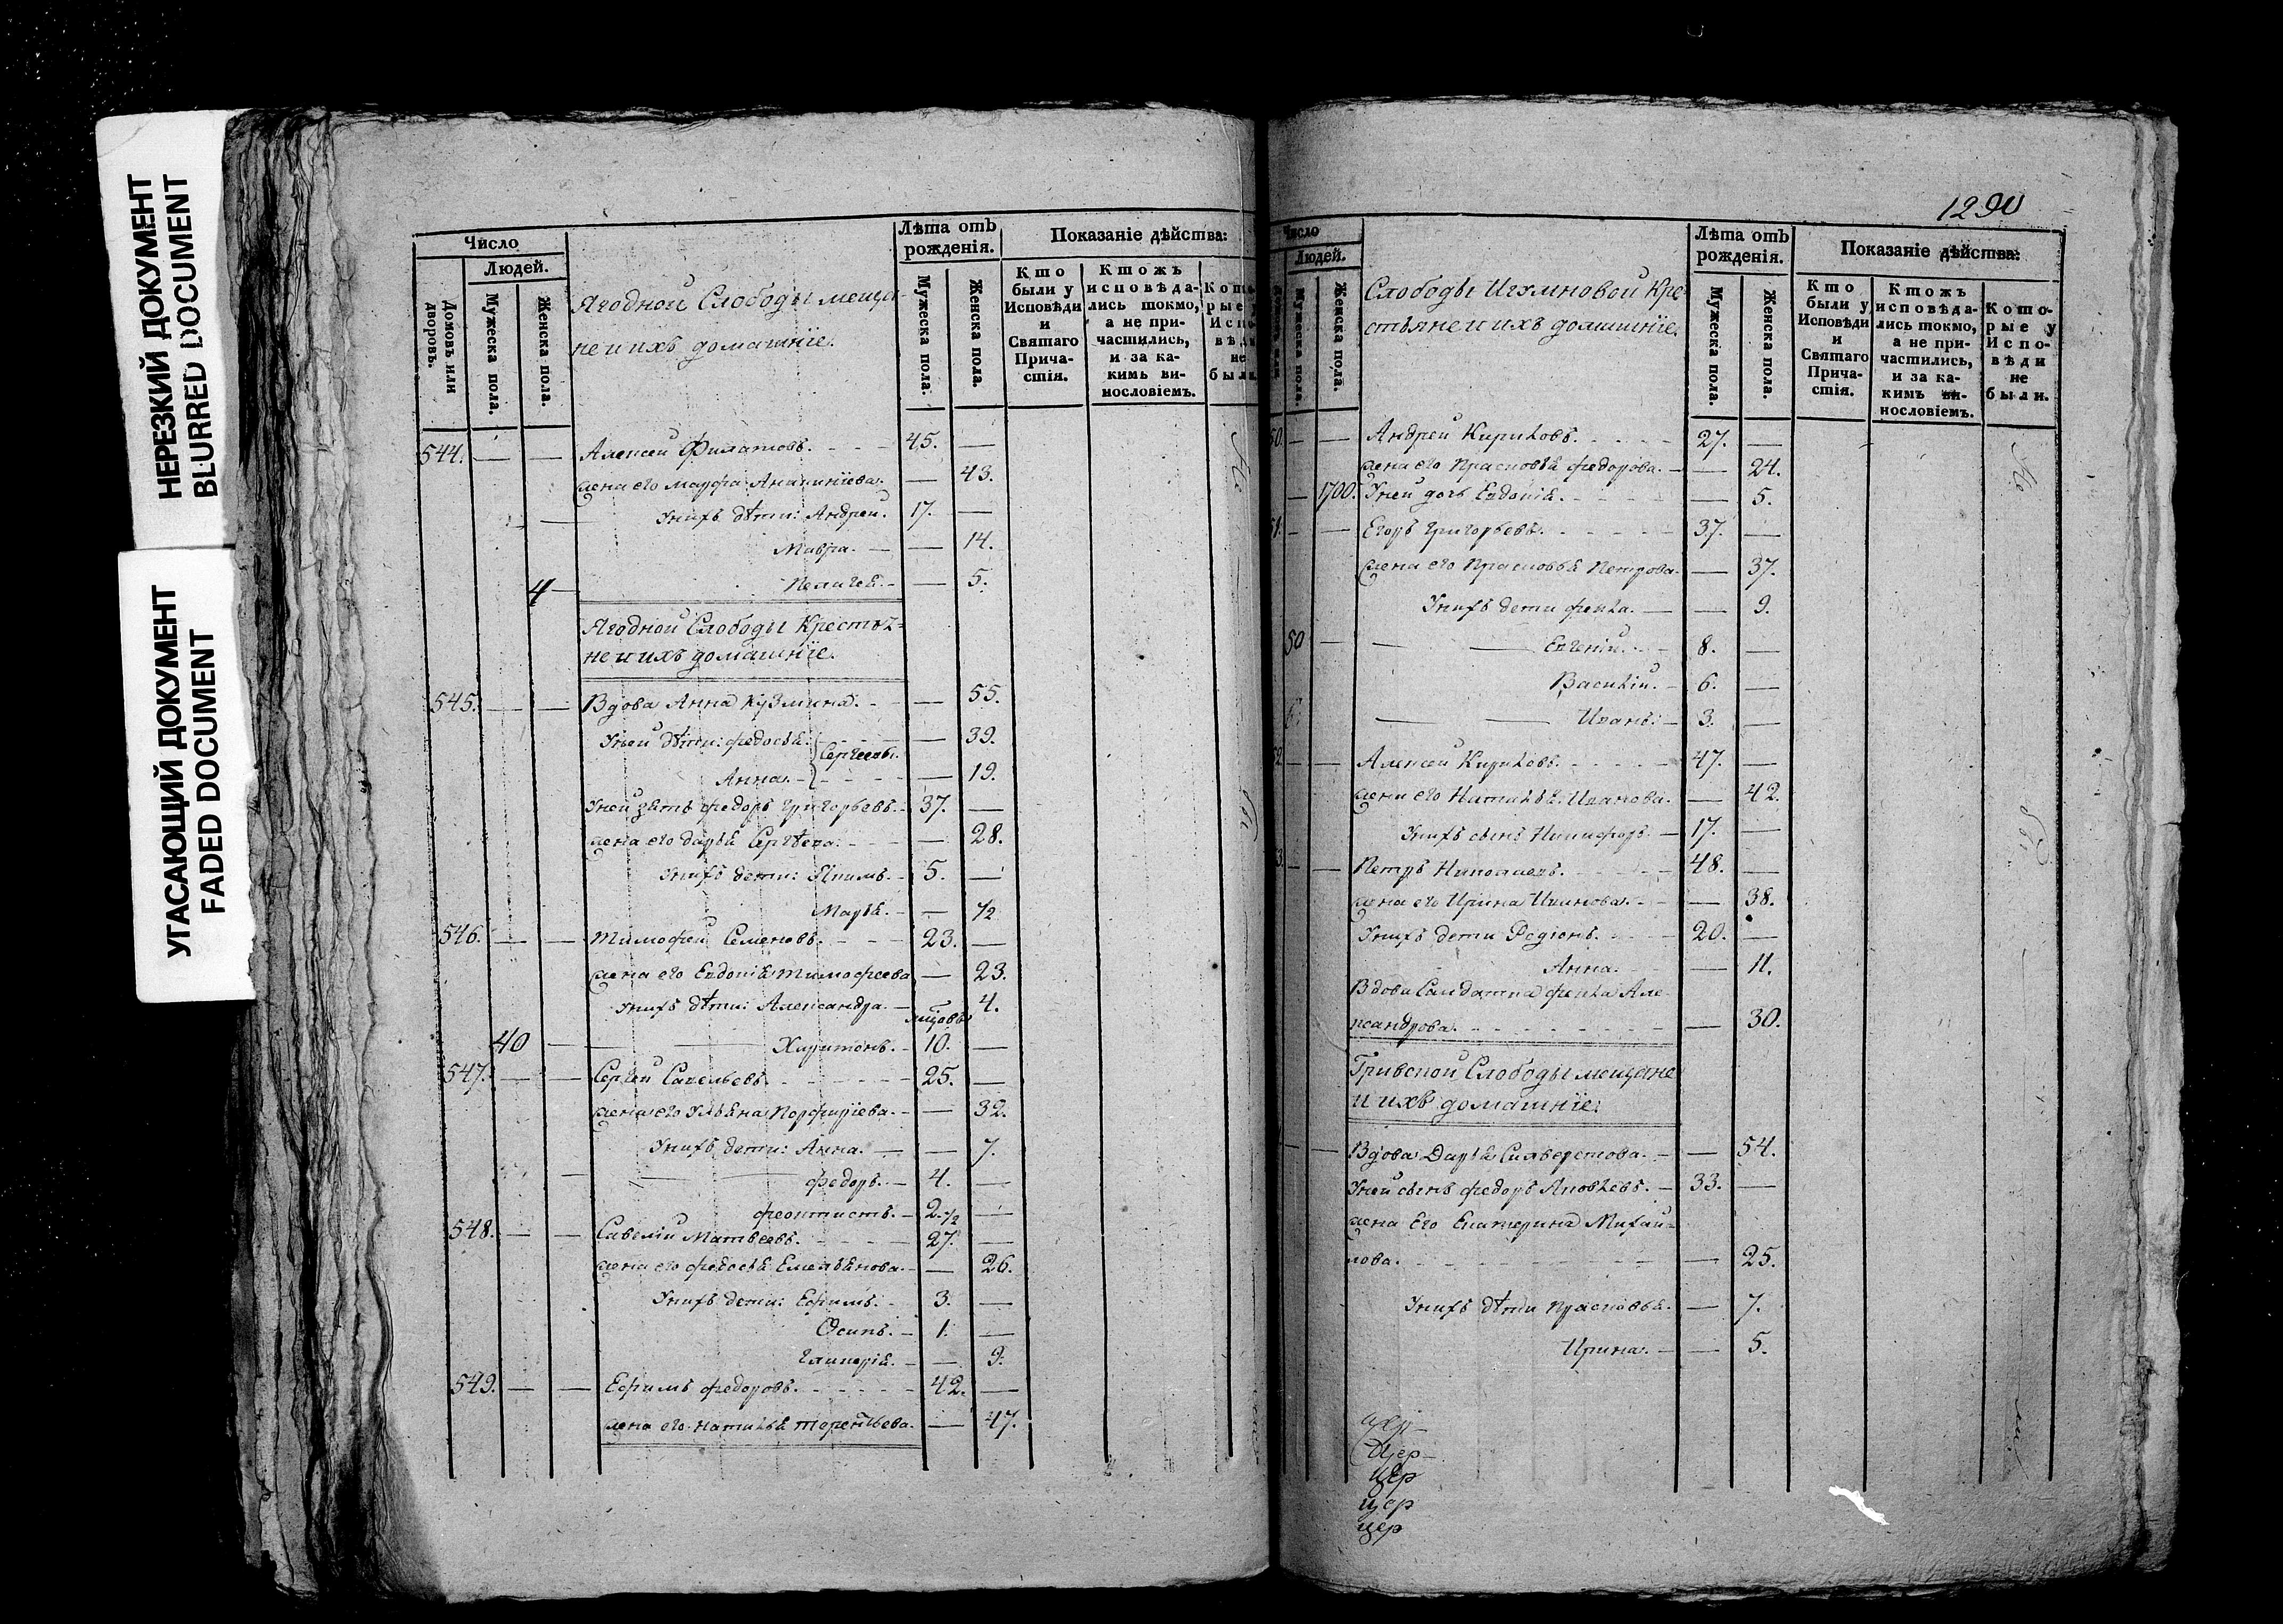 НЕРЕЗКИЙ ДОКУМЕНТ
BLURRED DOCUMENT
УГАСАЮЩИЙ ДОКУМЕНТ
FADED DOCUMENT
Число
Людей.
Домовъ или дворовъ.
Мужеска пола.
Женска пола.
Ягодной Слободы мещa-
не и ихъ домашнїе.
Лѣта отъ рожденія.
Мужеска пола.
Женска пола.
Показаніе дѣйства:
Кто были у Исповѣди и Святаго Прича-стія.
Ктожъ исповѣда-лись токмо, а не при-частились, и за ка-кимъ ви-нословіемъ.
544. — — Алексей Филатовъ. 45. —
жена его Марфа — 43.
У нихъ дѣти: Андрей. 17. —
Мавра. — — 14.
4 — Пелагеѣ. — — 5.
Ягодной Слободы Крестьѣ-
не и ихъ домашнїе.
545. — — Вдова Анна Кузмина. — 55.
У ней дѣти: Федосьѣ. Сергеевы. — 39.
Анна. — — 19.
У ней зѣть Федоръ Григорьевъ. 37. —
жена его Дарьѣ Сергѣева. — 28.
У нихъ дети: Якимъ. — 5. —
Марьѣ. — — 1/2
546. — — Тимофей Семеновъ. 23. —
жена его Евдокіѣ Тимофеева — 23.
У нихъ дѣти: Александра. — 4.
40 — Харитонъ. — 10. —
547. — — Сергей Савельевъ. 25. —
жена его Ульѣна Порфирїева. — — 32.
У нихъ дети: Анна. — — 7.
— Федоръ. — 4. —
Феоктистъ. — 2.1/2 —
548. — — Савелій Матвѣевъ. 27. —
жена его Федосьѣ Емельѣнова. — — 26.
У нихъ дети: Ефимъ. 3. —
Осипъ. — 1. —
Гликеріѣ. — — 9.
549. — — Ефимъ Федоровъ. 42. —
жена его Натальѣ Терентьева. — — 47.
1290
Число
Людей.
Мужеска пола.
Женска пола.
Слободы Игумновой Кре-
стьяне и ихъ домашнїе.
Лѣта отъ рожденія.
Мужеска пола.
Женска пола.
Показаніе дѣйства:
Кто были у Исповѣди и Святаго Прича-стія.
Ктожъ исповѣда-лись токмо, а не при-частились, и за ка-кимъ ви-нословіемъ.
Кото-рые у Испо-вѣди не были.
50. — — Андрей Кириловъ. 27. —
жена его Прасковьѣ Федорова. — — 24.
— 1700. У ней дочь Евдокіѣ. — 5.
51. — — Егоръ Григорьевъ. 37. —
жена его Прасковьѣ Петрова. — 37.
У нихъ дети Фекла. — — 9.
50 — — — Евгеній. 8. —
Василій. — 6. —
— — Иванъ. — 3. —
— — Алексей Кириловъ. 47. —
жена его Натальѣ Иванова. — 42.
У нихъ сынъ Никифоръ. — 17. —
— — Петръ Николаевъ. 48. —
жена его Ирина Иванова. — 38.
У нихъ дети Родіонъ. 20. —
Анна. — 11.
Вдова Салдатка Фекла Але-
ксандрова. — 30.
Гривской Слободы мещане
и ихъ домашнїе:
— — Вдова Дарьѣ Силверстова. — — 54.
У ней сынъ Федоръ Яковлевъ. — 33. —
жена Его Екатерина Михай-
лова. — 25.
У нихъ дѣти Прасковьѣ. — 7.
Ирина. — — 5.
цер
Цер
цер
цер
цер